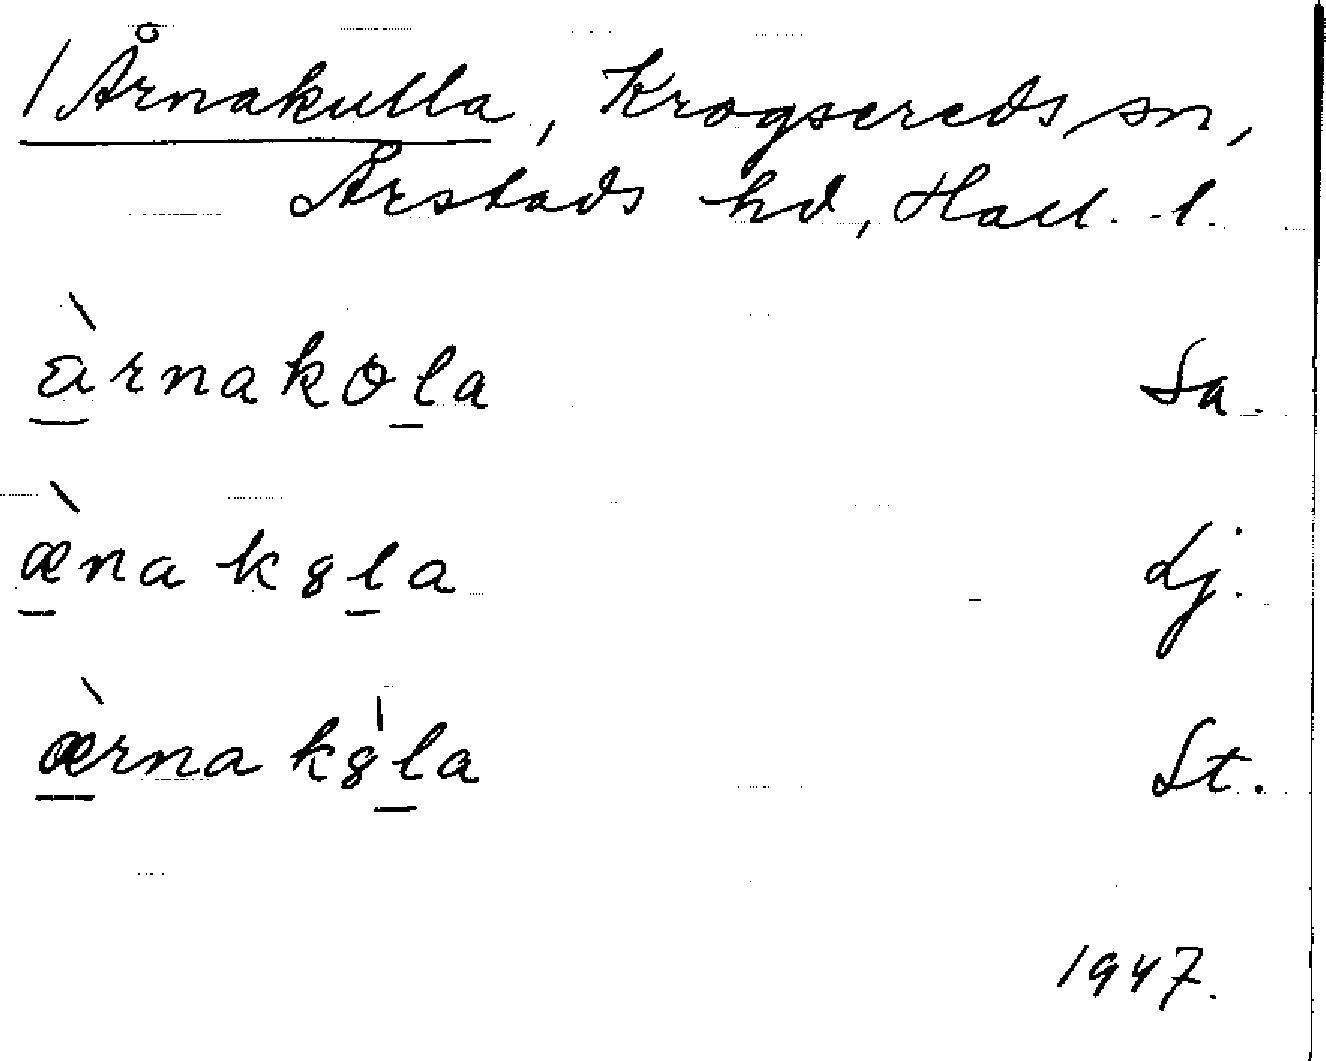 / Årnakulla, Krogsereds sn,
Årstads hd, Hall. l.
à̱rnakol̲a Sa.
æ̱̀nak8l̲a Lj.
æ̱̀rnak8̍l̲a St.
1947.